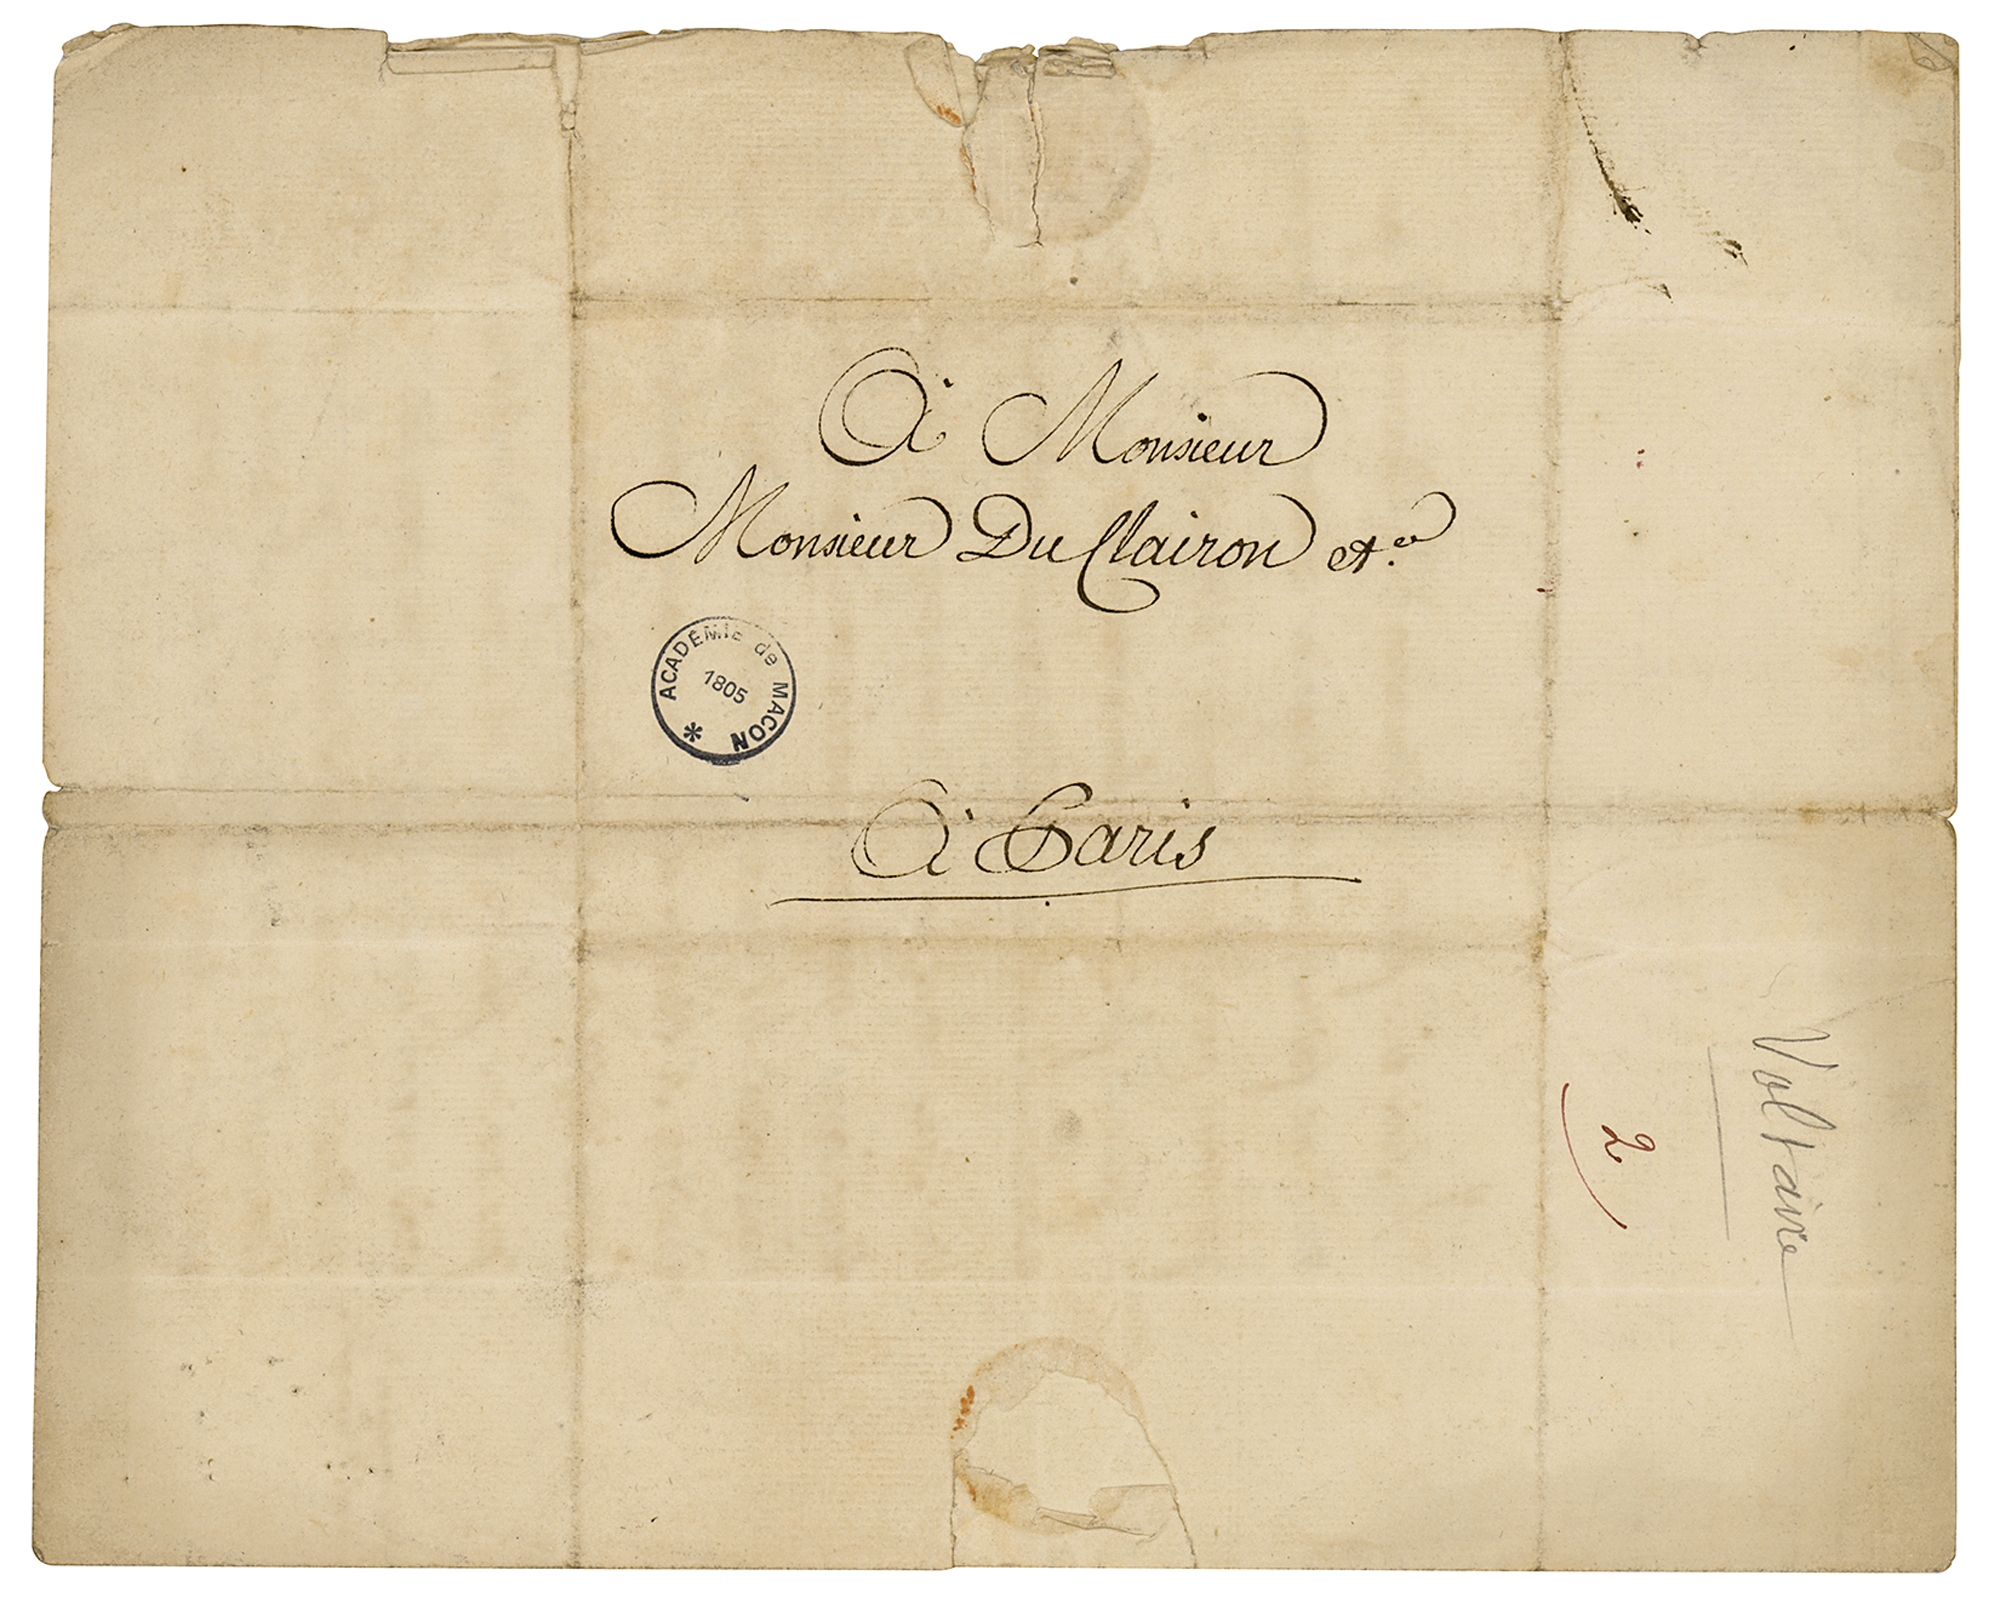 À Monsieur
Monsieur Du Clairon etc.ª
ACADÉMIE de MACON
1805
*
À Paris
2
Voltaire